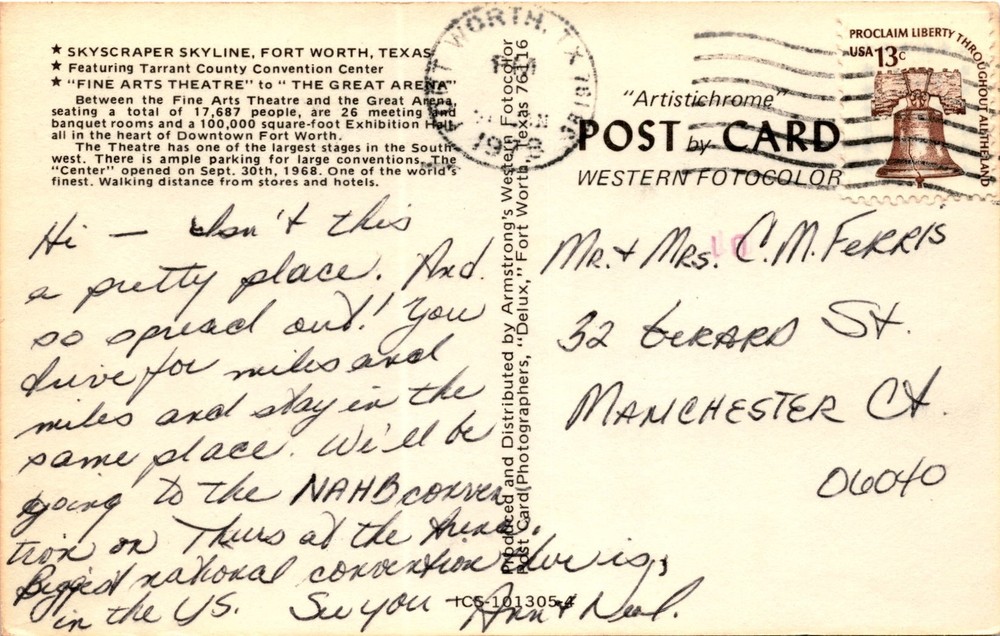 ★ SKYSCRAPER SKYLINE, FORT WORTH, TEXAS
★ Featuring Tarrant County Convention Center
★ "FINE ARTS THEATRE" to " THE GREAT ARENA"
Between the Fine Arts Theatre and the Great Arena,
seating a total of 17,687 people, are 26 meeting and
banquet rooms and a 100,000 square-foot Exhibition Hall,
all in the heart of Downtown Fort Worth.
The Theatre has one of the largest stages in the South-
west. There is ample parking for large conventions. The
"Center" opened on Sept. 30th, 1968. One of the world's
finest. Walking distance from stores and hotels.
Hi — Isn't this
a pretty place. And
so spread out! You
drive for miles and
miles and stay in the
same place. We'll be
going to the NAHB conven
tion on Thurs at the Arena.
Biggest national convention there is,
in the US. See you - Ann & Neal.
Produced and Distributed by Armstrong's Western Fotocolor
Post Card (Photographers, "Delux," Fort Worth, Texas 76116
IC5-101305-4
FORT WORTH, TX
PM
19
PROCLAIM LIBERTY THROUGHOUT ALL THE LAND
USA 13c
"Artistichrome"
POST by CARD
WESTERN FOTOCOLOR
10
Mr. & Mrs. C. M. FERRIS
32 GERARD St.
MANCHESTER Ct.
06040